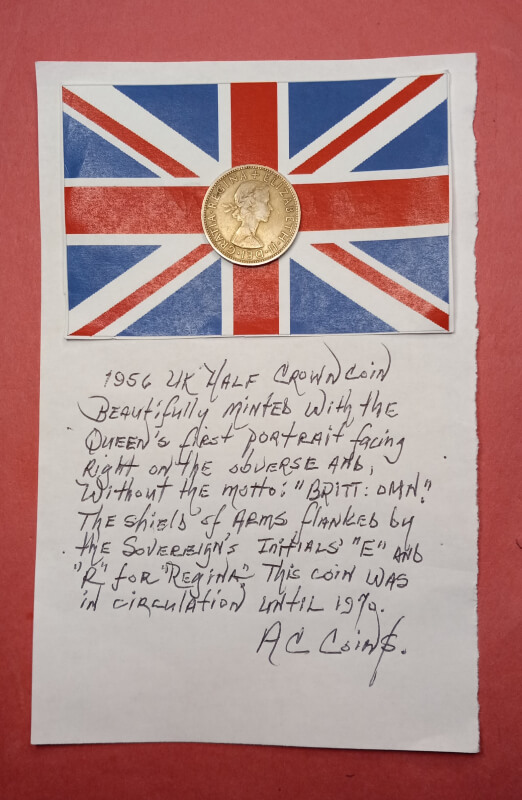 ELIZABETH·II·DEI·GRATIA·REGINA
1956 UK HALF CROWN COIN
BEAUTIFULLY MINTED WITH THE
QUEEN'S FIRST PORTRAIT FACING
RIGHT ON THE OBVERSE AND,
WITHOUT THE MOTTO: "BRITT: OMN".
THE SHIELD OF ARMS FLANKED BY
THE SOVEREIGN'S INITIALS "E" AND
"R" FOR "REGINA". THIS COIN WAS
IN CIRCULATION UNTIL 1970.
A C COIN$.